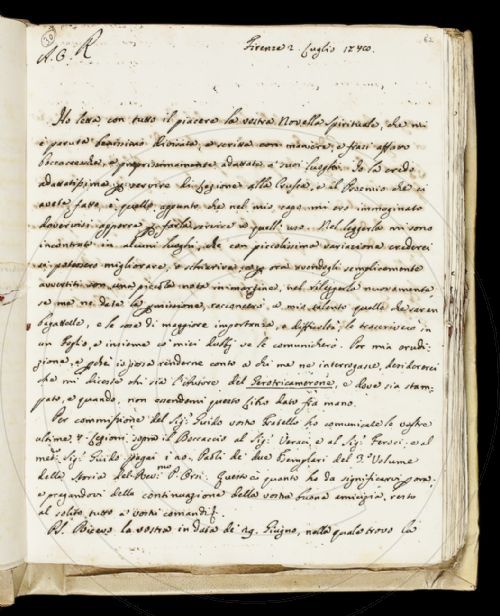 30
62
A. G. R
Firenze 2. Luglio 1740.
Ho letta con tutto il piacere la vostra Novella Spirituale, che mi
è paruta benissimo ideata, e scritta con maniere, e frasi affatto
boccaccevoli, e propriissimamente adattate a' suoi luoghi. Io la credo
adattatissima per servire di Lezione alla Crusca, e il Proemio che ci
avete fatto è quello appunto che nel mio capo mi ero immaginato
dovervisi apporre per farla servire a quell' uso. Nel leggerla mi sono
incontrato in alcuni luoghi, che con piccolissima variazione crederei
si potessero migliorare, e schiarire, onde ora avendogli semplicemente
avvertiti con una piccola nota in margine, nel rileggerla nuovamente
se me ne date la permissione, racconcerò a mio talento quelle che saranno
bagattelle, e le cose di maggiore importanza, e difficoltà le trascriverò in
un foglio, e insieme co' miei dubbj ve le comunicherò. Per mia erudi-
zione, e perchè io possa renderne conto a chi me ne interrogasse, desidererei
che mi diceste chi sia l'Autore del Gerotricamerone, e dove sia stam-
pato, e quando, non essendomi questo Libro dato fra mano.
Per commissione del Sig. Guido vostro Fratello ho comunicate le vostre
ultime 4. Lezioni sopra il Boccaccio al Sig. Varaci, e al Sig. Ferosi, e al
med.mo Sig. Guido pagai i 20. Paoli de' due Esemplari del 3.o Volume
della Storia del Rev.mo P. Orsi. Questo è quanto ho da significarvi per ora,
e pregandovi della continuazione della vostra buona amicizia, resto
al solito tutto a' vostri comandi
PS. Ricevo la vostra in data de' 29. Giugno, nella quale trovo la